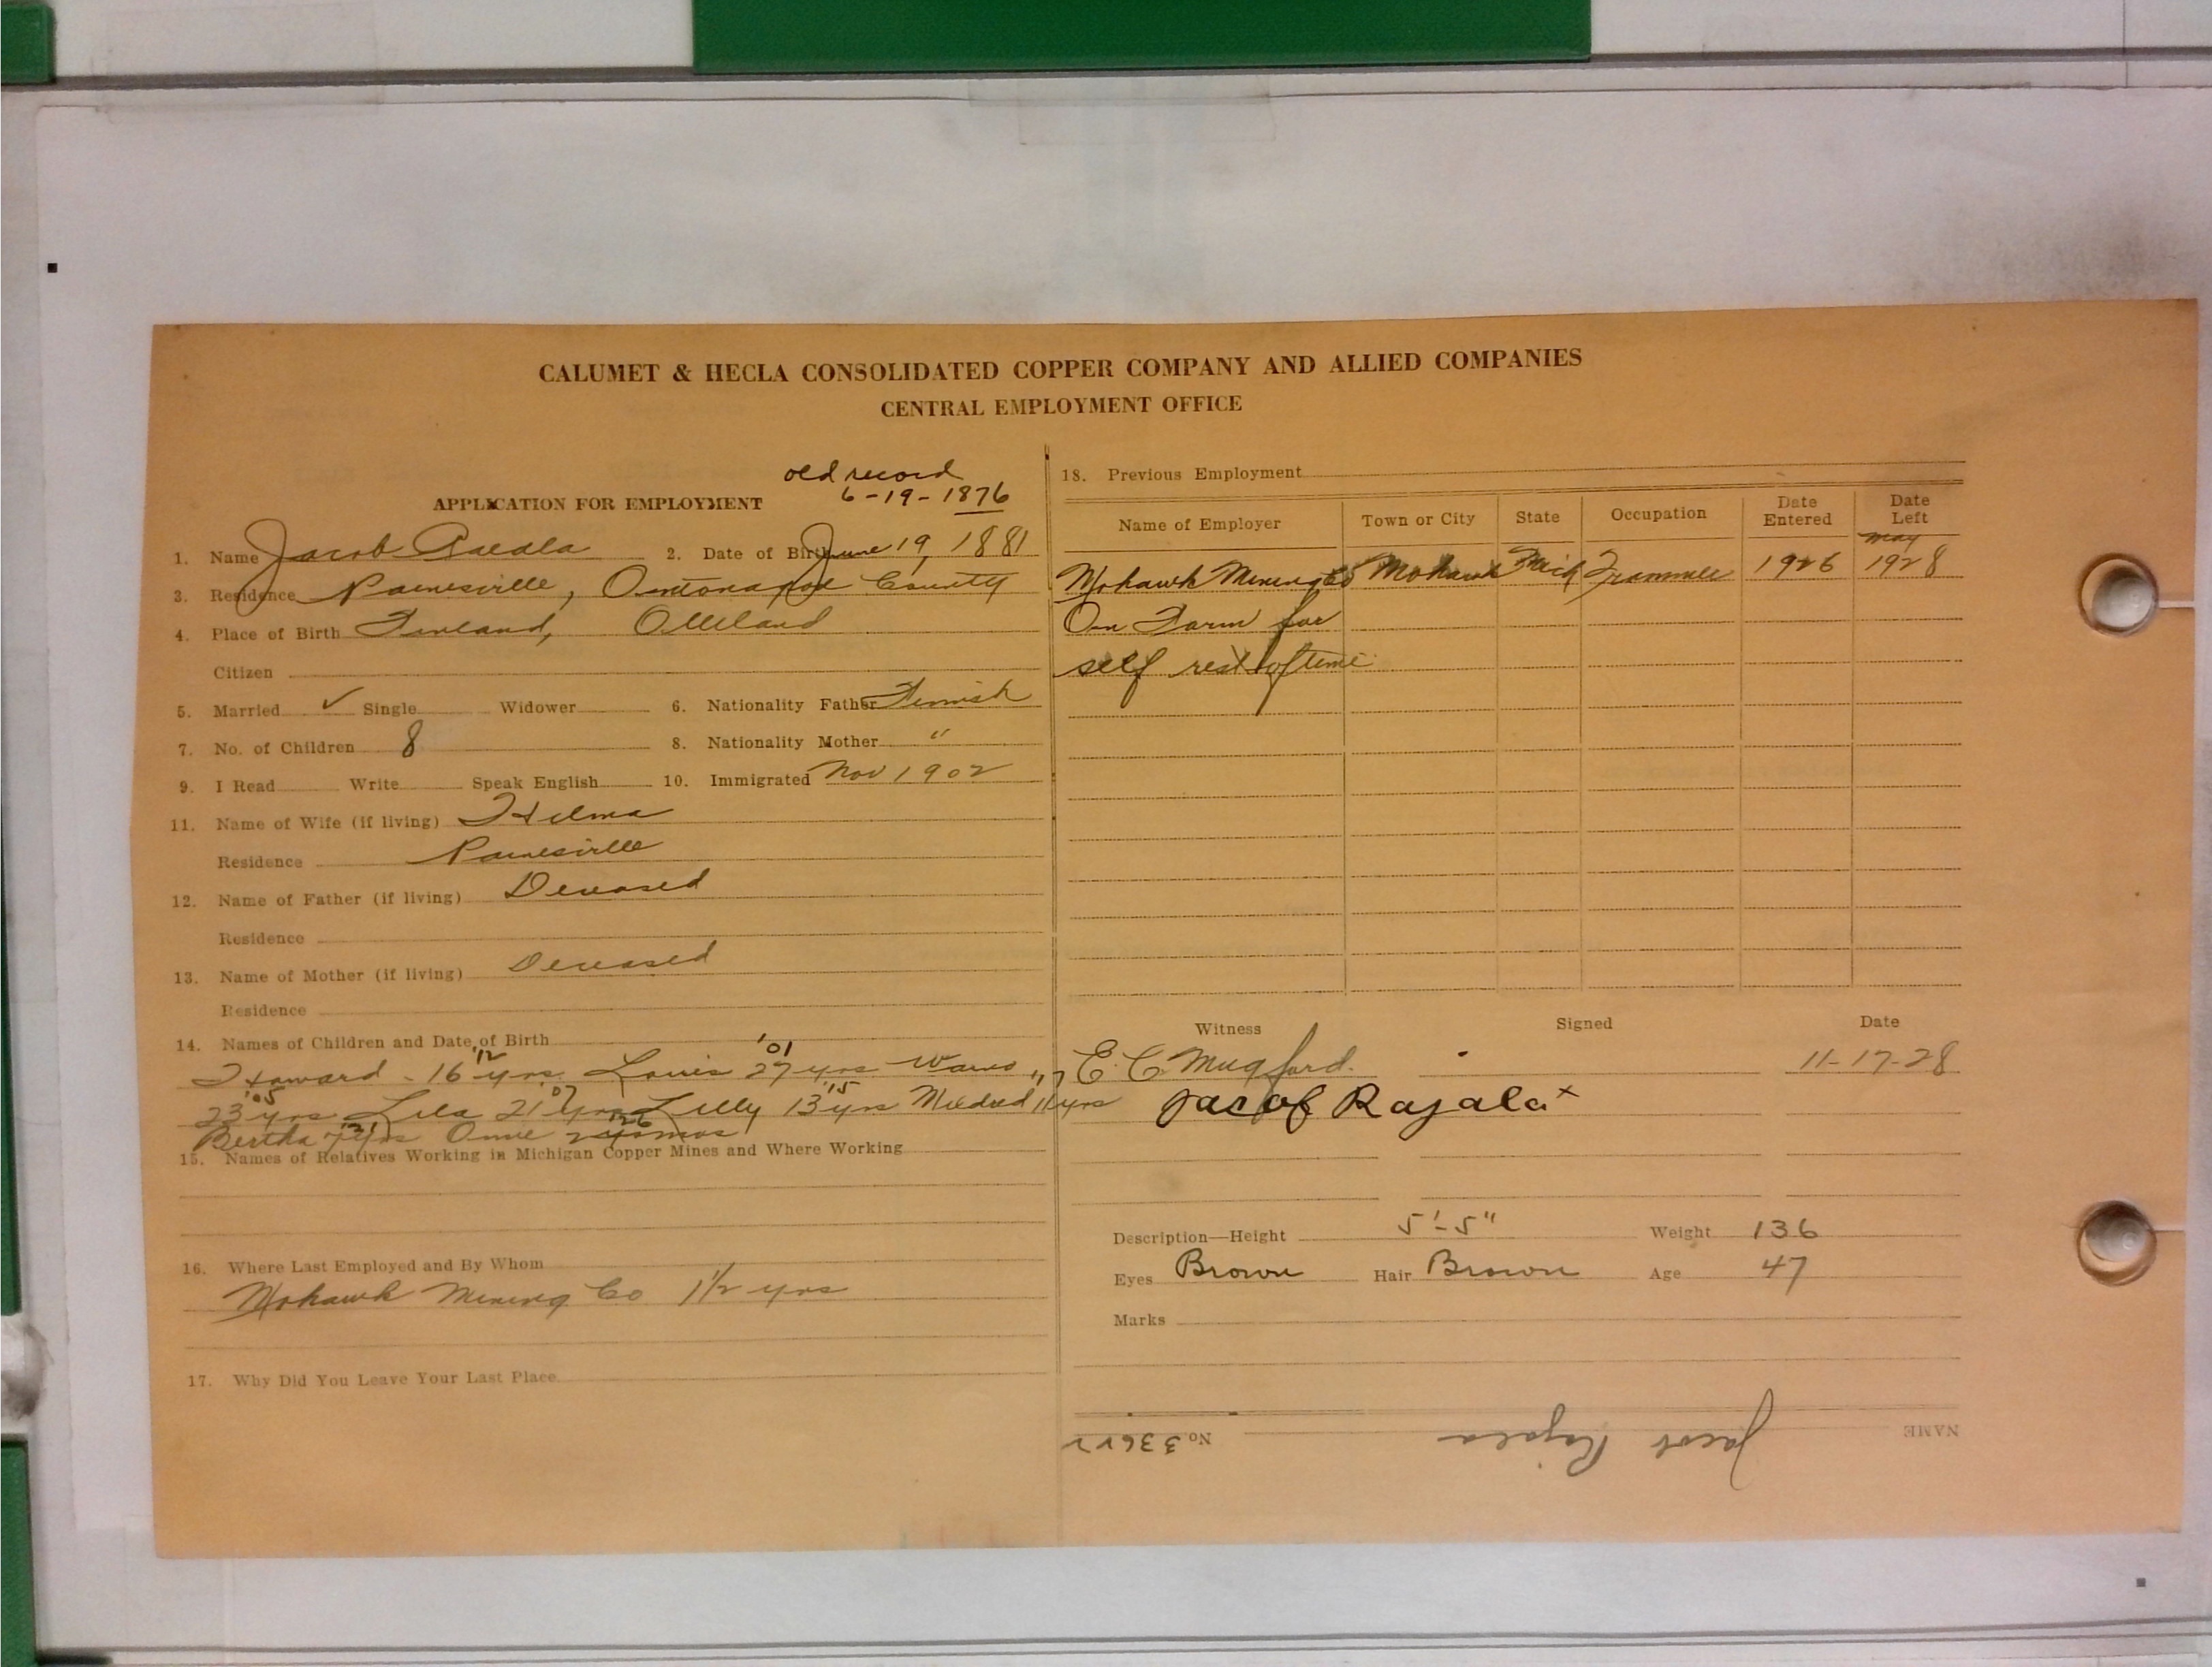 CALUMET & HECLA CONSOLIDATED COPPER COMPANY AND ALLIED COMPANIES
CENTRAL EMPLOYMENT OFFICE
old record
6-19-1876
APPLICATION FOR EMPLOYMENT
1. Name Jacob 2. Date of Birth June 19, 1881
3. Residence Painesville, Ontonagon County
4. Place of Birth Finland,
Citizen
5. Married ✓ Single Widower 6. Nationality Father Finnish
7. No. of Children 8 8. Nationality Mother "
9. I Read Write Speak English 10. Immigrated Nov 1902
11. Name of Wife (if living) Hilma
Residence Painesville
12. Name of Father (if living) Deceased
Residence
13. Name of Mother (if living) Deceased
Residence
14. Names of Children and Date of Birth
'12 '01
Howard - 16 yrs Louis 27 yrs
'05 '07 '15
23 yrs Lila 21 yrs Lilly 13 yrs Mildred 11 yrs
Bertha
15. Names of Relatives Working in Michigan Copper Mines and Where Working
16. Where Last Employed and By Whom
Mohawk Mining Co 1 1/2 yrs
17. Why Did You Leave Your Last Place
18. Previous Employment
Name of Employer Town or City State Occupation Date Entered Date Left
May
Mohawk Mining Co Mohawk Mich Trammer 1926 1928
On Farm for
self rest of time
Witness Signed Date
E. C. Mugford. 11-17-28
Jacob Rajala x
Description—Height 5'-5" Weight 136
Eyes Brown Hair Brown Age 47
Marks
NAME Jacob Rajala No.